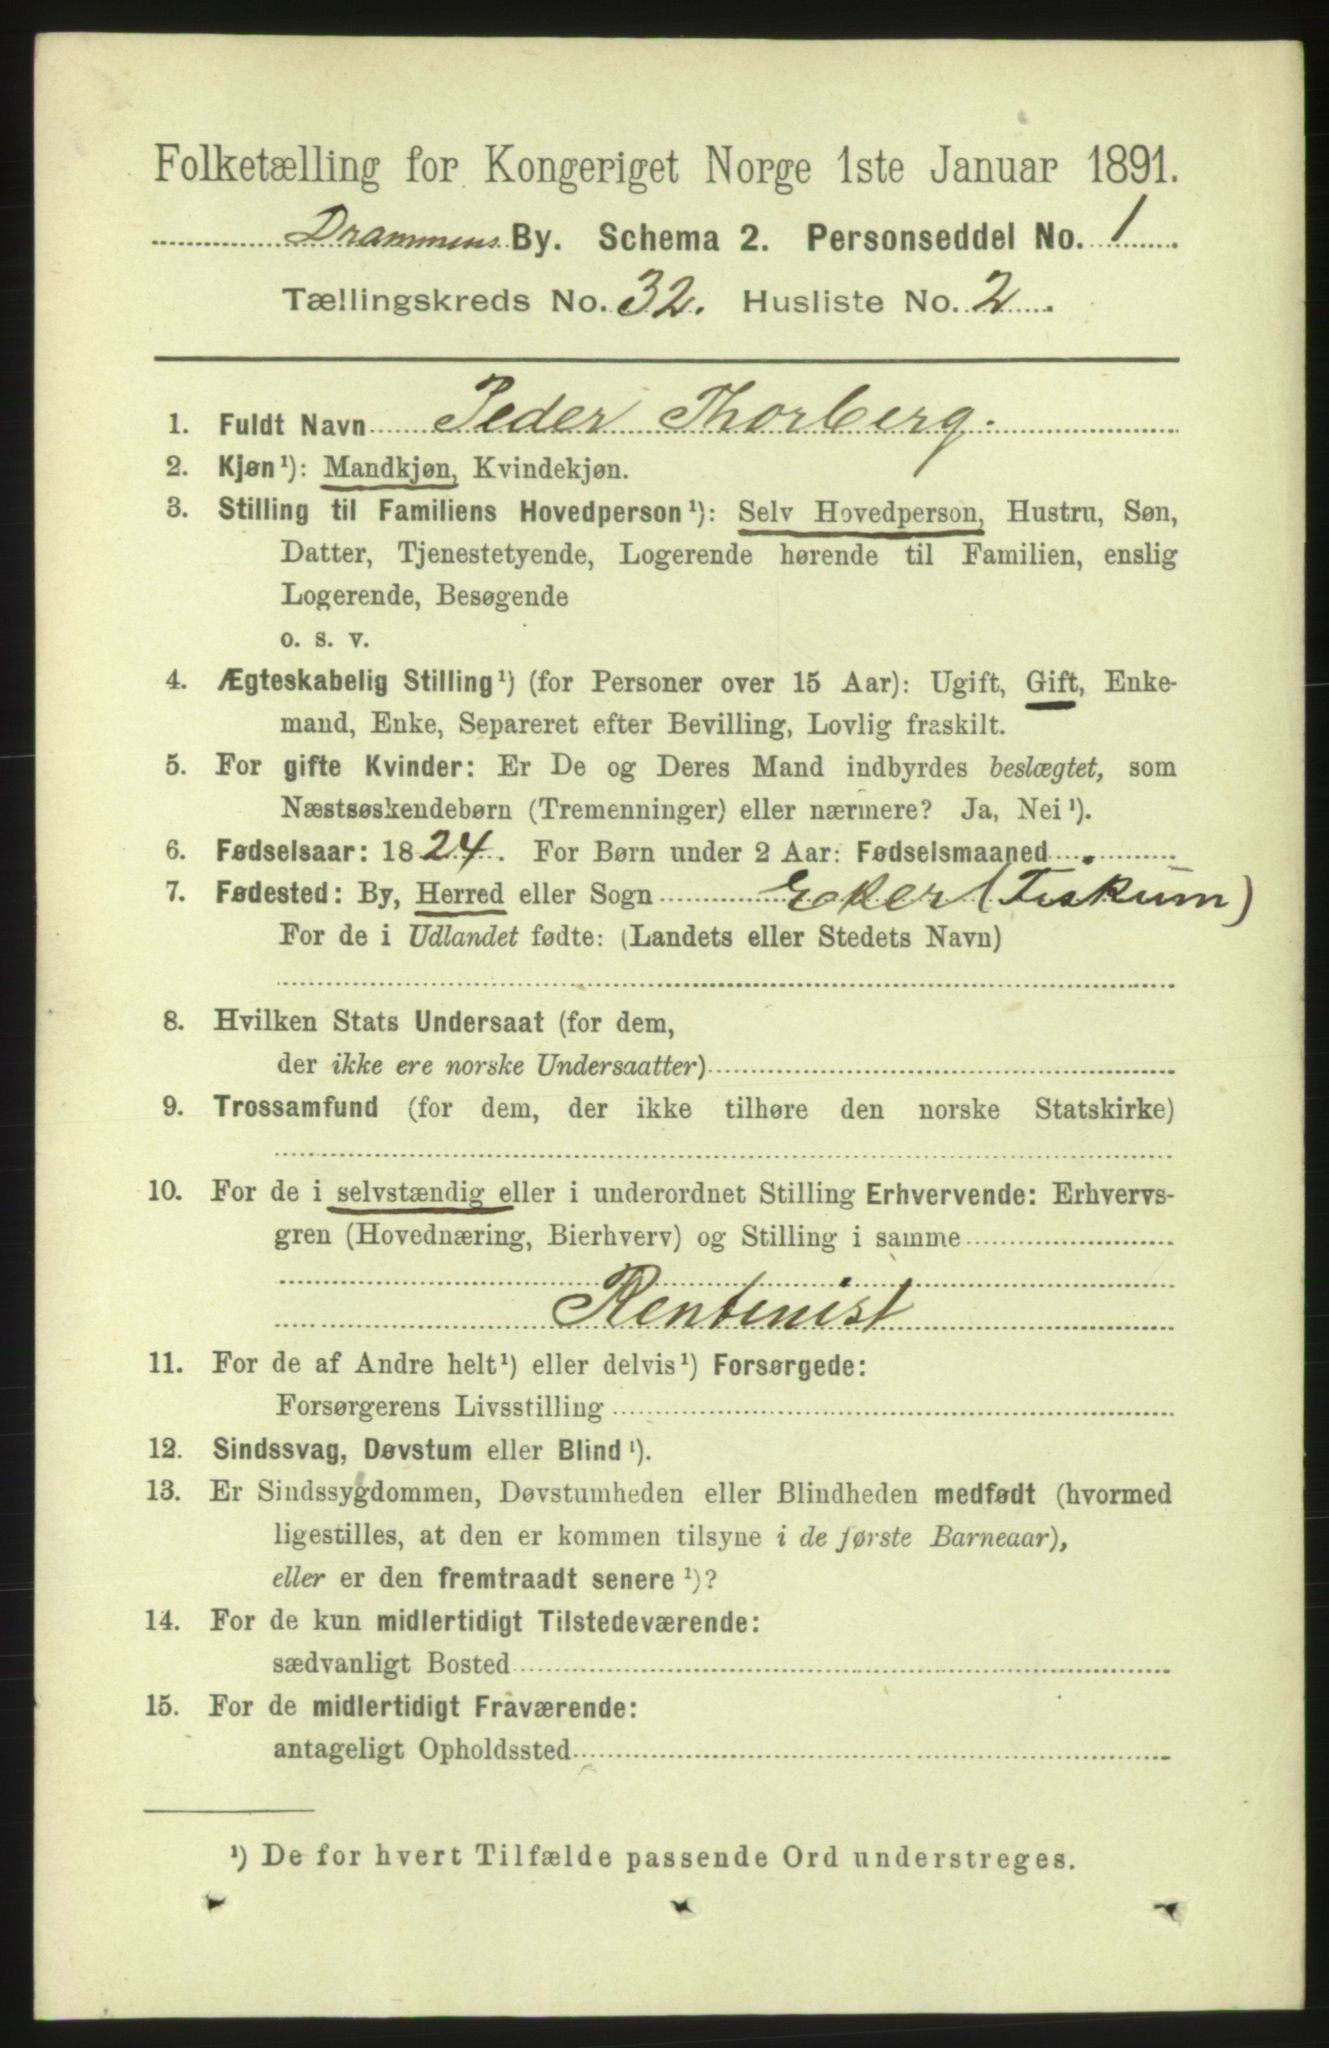 Folketælling for Kongeriget Norge 1ste Januar 1891.
Drammens By. Schema 2. Personseddel No. 1
Tællingskreds No. 32. Husliste No. 2
1. Fuldt Navn Peder Thorberg.
2. Kjøn¹): Mandkjøn, Kvindekjøn.
3. Stilling til Familiens Hovedperson¹): Selv Hovedperson, Hustru, Søn,
Datter, Tjenestetyende, Logerende hørende til Familien, enslig
Logerende, Besøgende
o. s. v.
4. Ægteskabelig Stilling¹) (for Personer over 15 Aar): Ugift, Gift, Enke-
mand, Enke, Separeret efter Bevilling, Lovlig fraskilt.
5. For gifte Kvinder: Er De og Deres Mand indbyrdes beslægtet, som
Næstsøskendebørn (Tremenninger) eller nærmere? Ja, Nei¹).
6. Fødselsaar: 1824. For Børn under 2 Aar: Fødselsmaaned
7. Fødested: By, Herred eller Sogn Eker (Fiskum)
For de i Udlandet fødte: (Landets eller Stedets Navn)
8. Hvilken Stats Undersaat (for dem,
der ikke ere norske Undersaatter)
9. Trossamfund (for dem, der ikke tilhøre den norske Statskirke)
10. For de i selvstændig eller i underordnet Stilling Erhvervende: Erhvervs-
gren (Hovednæring, Bierhverv) og Stilling i samme
Rentenist
11. For de af Andre helt¹) eller delvis¹) Forsørgede:
Forsørgerens Livsstilling
12. Sindssvag, Døvstum eller Blind¹).
13. Er Sindssygdommen, Døvstumheden eller Blindheden medfødt (hvormed
ligestilles, at den er kommen tilsyne i de første Barneaar),
eller er den fremtraadt senere¹)?
14. For de kun midlertidigt Tilstedeværende:
sædvanligt Bosted
15. For de midlertidigt Fraværende:
antageligt Opholdssted
¹) De for hvert Tilfælde passende Ord understreges.